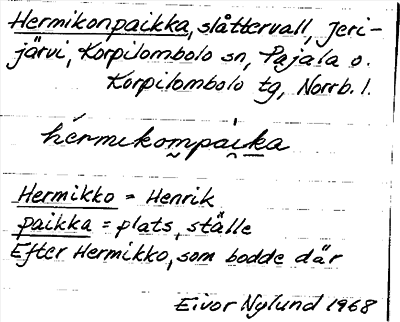 Hermikonpaikka, slåttervall, Jeri-
järvi, Korpilombolo sn, Pajala o.
Korpilombolo tg, Norrb. l.
hérmikompaika
Hermikko = Henrik
paikka = plats, ställe
Efter Hermikko, som bodde där
Eivor Nylund 1968